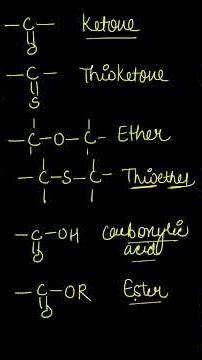 -C- Ketone
||
O
-C- Thioketone
||
S
-C-O-C- Ether
-C-S-C- Thioether
-C-OH Carboxylic
|| acid
O
-C-OR Ester
||
O